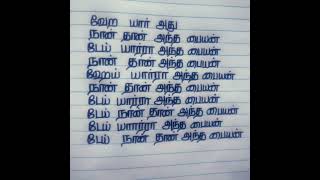 வேற யார் அது
நான் தான் அந்த பையன்
டேய் யார்ரா அந்த பையன்
நான் தான் அந்த பையன்
ஹேய் யார்ரா அந்த பையன்
நான் தான் அந்த பையன்
டேய் யார்ரா அந்த பையன்
டேய் நான் தான் அந்த பையன்
டேய் யாார்ரா அந்த பையன்
டேய் நான் தான் அந்த பையன்